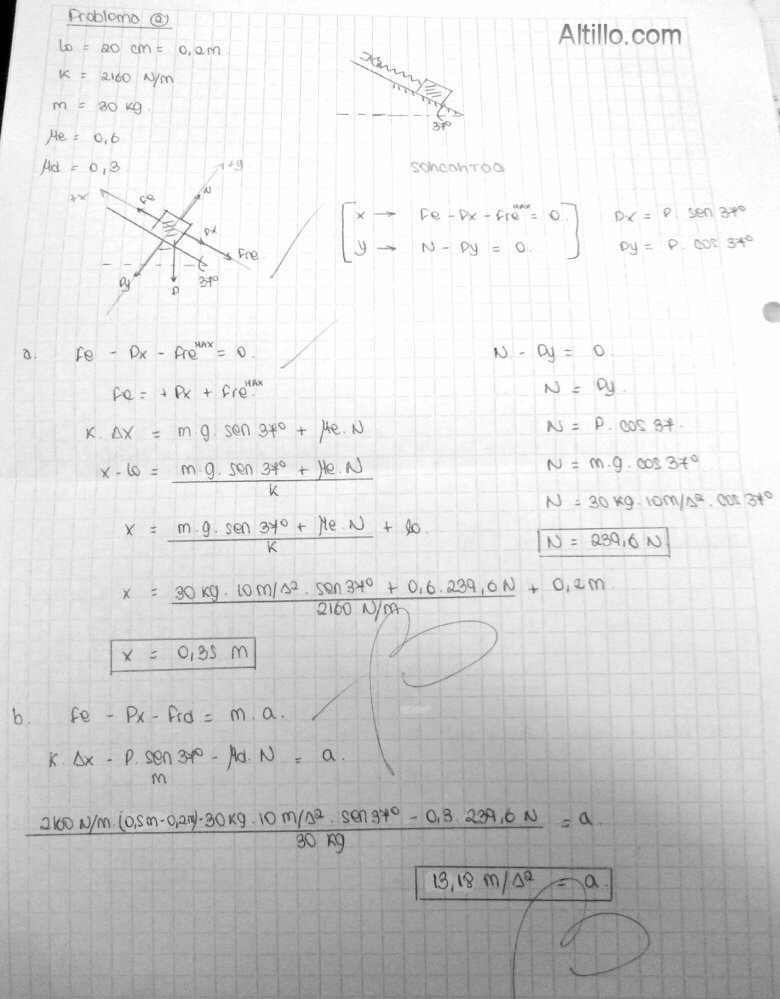 Problema 2
Altillo.com
lo = 20 cm = 0,2m
K = 2160 N/m
m = 30 kg
μe = 0,6
μd = 0,3
37º
+y
+x
Fe
N
Px
Fre
Py
P
37º
x → Fe - Px - Fre MAX = 0.
y → N - Py = 0.
Px = P. sen 37º
Py = P. cos 37º
a. Fe - Px - Fre MAX = 0.
Fe = + Px + Fre MAX
K. Δx = m. g. sen 37º + μe. N
x - lo = m. g. sen 37º + μe. N
K
x = m. g. sen 37º + μe. N + lo.
K
x = 30 kg. 10 m/s². sen 37º + 0,6. 239,6 N + 0,2 m.
2160 N/m
x = 0,35 m
N - Py = 0.
N = Py.
N = P. cos 37.
N = m. g. cos 37º
N = 30 kg. 10 m/s². cos 37º
N = 239,6 N
b. Fe - Px - Frd = m. a.
K. Δx - P. sen 37º - μd. N = a.
m
2160 N/m. (0,5m-0,2m)-30 kg. 10 m/s². sen 37º - 0,3. 239,6 N = a.
30 kg
13,18 m/s² = a.